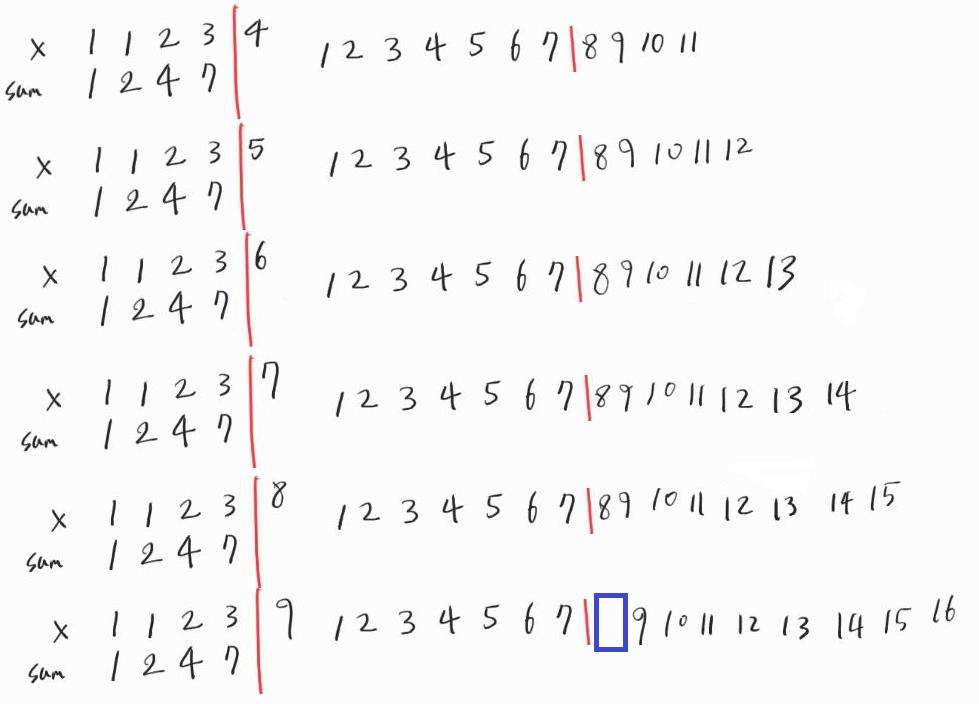 x 1 1 2 3 4 1 2 3 4 5 6 7 8 9 10 11
sum 1 2 4 7
x 1 1 2 3 5 1 2 3 4 5 6 7 8 9 10 11 12
sum 1 2 4 7
x 1 1 2 3 6 1 2 3 4 5 6 7 8 9 10 11 12 13
sum 1 2 4 7
x 1 1 2 3 7 1 2 3 4 5 6 7 8 9 10 11 12 13 14
sum 1 2 4 7
x 1 1 2 3 8 1 2 3 4 5 6 7 8 9 10 11 12 13 14 15
sum 1 2 4 7
x 1 1 2 3 9 1 2 3 4 5 6 7 9 10 11 12 13 14 15 16
sum 1 2 4 7